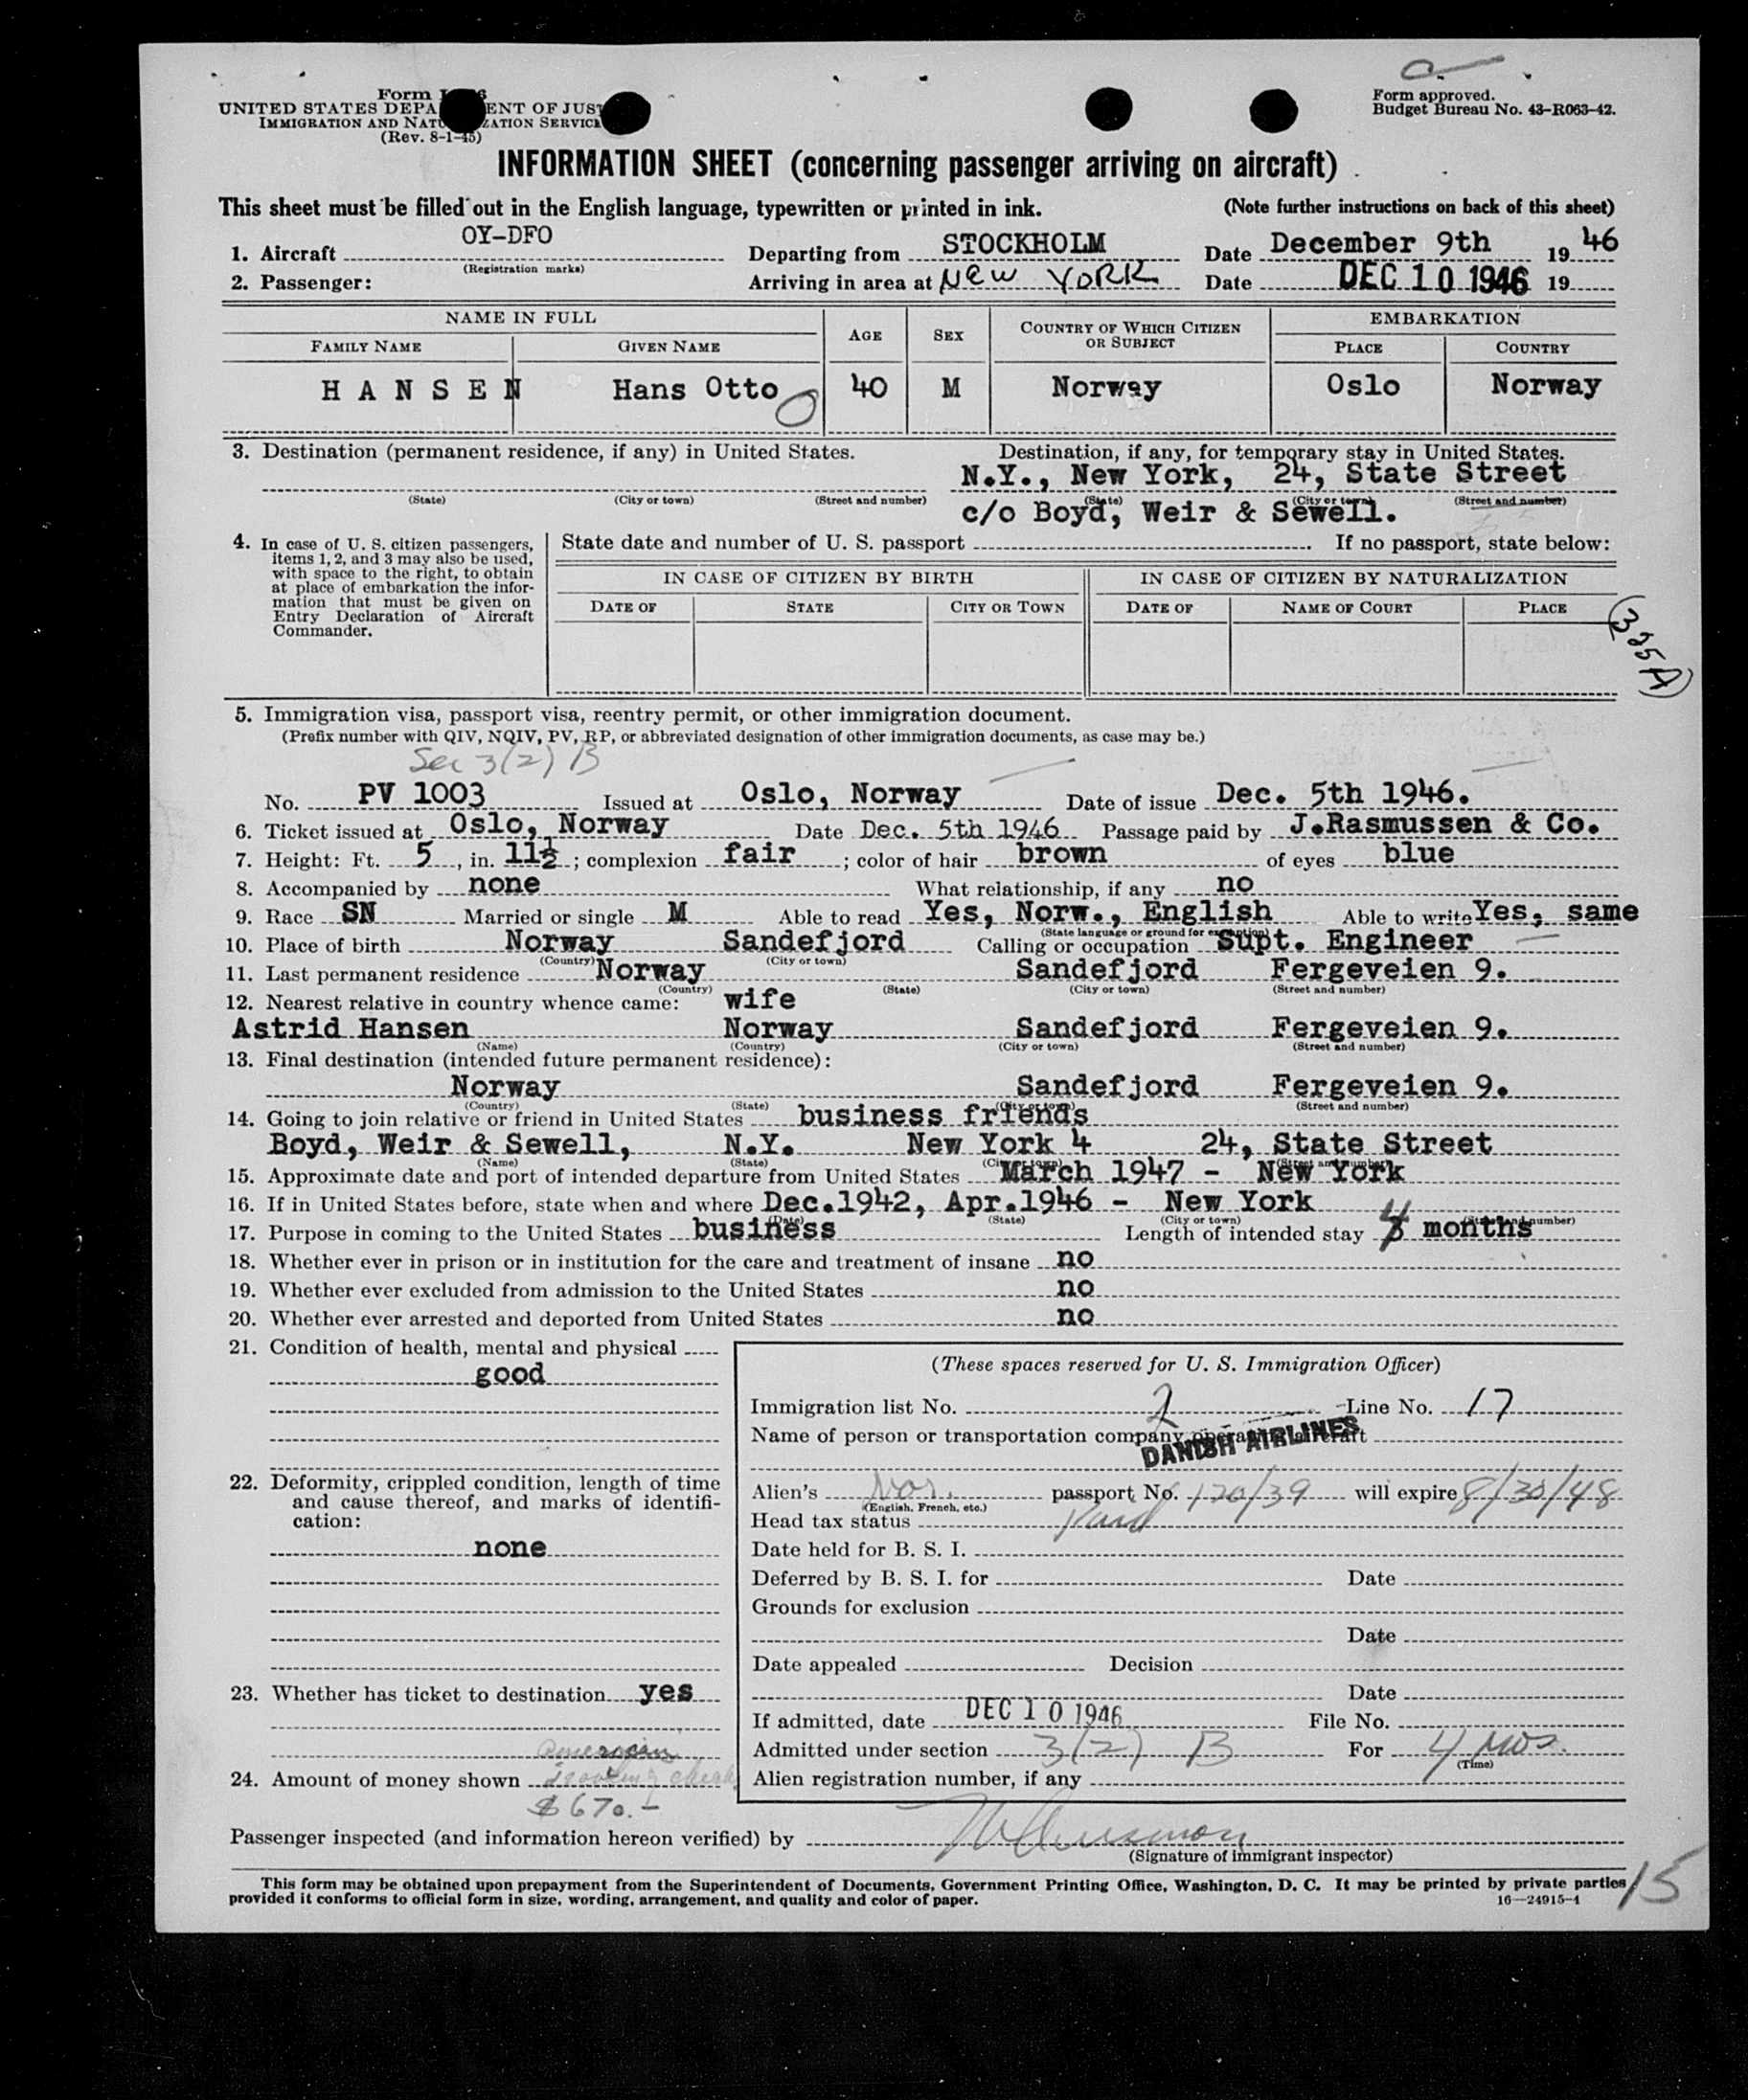 Form
UNITED STATES DEPA ENT OF JUS
IMMIGRATION AND NATU ZATION SERVIC
(Rev. 8-1-45)
Form approved.
Budget Bureau No. 43-R063-42.
INFORMATION SHEET (concerning passenger arriving on aircraft)
This sheet must be filled out in the English language, typewritten or printed in ink. (Note further instructions on back of this sheet)
1. Aircraft OY-DFO Departing from STOCKHOLM Date December 9th 19 46
(Registration marks)
2. Passenger: Arriving in area at New YORK Date DEC 10 1946 19
NAME IN FULL AGE SEX COUNTRY OF WHICH CITIZEN OR SUBJECT EMBARKATION
FAMILY NAME GIVEN NAME PLACE COUNTRY
H A N S E N Hans Otto 40 M Norway Oslo Norway
3. Destination (permanent residence, if any) in United States. Destination, if any, for temporary stay in United States.
N.Y., New York, 24, State Street
(State) (City or town) (Street and number) (State) (City or town) (Street and number)
c/o Boyd, Weir & Sewell.
4. In case of U. S. citizen passengers, items 1, 2, and 3 may also be used, with space to the right, to obtain at place of embarkation the information that must be given on Entry Declaration of Aircraft Commander.
State date and number of U. S. passport If no passport, state below:
IN CASE OF CITIZEN BY BIRTH IN CASE OF CITIZEN BY NATURALIZATION
DATE OF STATE CITY OR TOWN DATE OF NAME OF COURT PLACE
(325A)
5. Immigration visa, passport visa, reentry permit, or other immigration document.
(Prefix number with QIV, NQIV, PV, RP, or abbreviated designation of other immigration documents, as case may be.)
Sec 3(2) B
No. PV 1003 Issued at Oslo, Norway Date of issue Dec. 5th 1946.
6. Ticket issued at Oslo, Norway Date Dec. 5th 1946 Passage paid by J.Rasmussen & Co.
7. Height: Ft. 5, in. 11½; complexion fair; color of hair brown of eyes blue
8. Accompanied by none What relationship, if any no
9. Race SN Married or single M Able to read Yes, Norw., English Able to write Yes, same
(State language or ground for exemption)
10. Place of birth Norway Sandefjord Calling or occupation Supt. Engineer
(Country) (City or town)
11. Last permanent residence Norway Sandefjord Fergeveien 9.
(Country) (State) (City or town) (Street and number)
12. Nearest relative in country whence came: wife
Astrid Hansen Norway Sandefjord Fergeveien 9.
(Name) (Country) (City or town) (Street and number)
13. Final destination (intended future permanent residence):
Norway Sandefjord Fergeveien 9.
(Country) (State) (City or town) (Street and number)
14. Going to join relative or friend in United States business friends
Boyd, Weir & Sewell, N.Y. New York 4 24, State Street
(Name) (State) (City or town) (Street and number)
15. Approximate date and port of intended departure from United States March 1947 - New York
16. If in United States before, state when and where Dec.1942, Apr.1946 - New York
(Date) (State) (City or town) (Street and number)
17. Purpose in coming to the United States business Length of intended stay 4 months
18. Whether ever in prison or in institution for the care and treatment of insane no
19. Whether ever excluded from admission to the United States no
20. Whether ever arrested and deported from United States no
21. Condition of health, mental and physical
good
22. Deformity, crippled condition, length of time and cause thereof, and marks of identification:
none
23. Whether has ticket to destination yes
24. Amount of money shown american
$670.-
(These spaces reserved for U. S. Immigration Officer)
Immigration list No. 2 Line No. 17
Name of person or transportation company operating aircraft
DANISH AIRLINES
Alien's Nor. passport No. 120/39 will expire 8/30/48
(English, French, etc.)
Head tax status Paid
Date held for B. S. I.
Deferred by B. S. I. for Date
Grounds for exclusion
Date
Date appealed Decision
Date
If admitted, date DEC 10 1946 File No.
Admitted under section 3(2) B For 4 mos.
(Time)
Alien registration number, if any
Passenger inspected (and information hereon verified) by
(Signature of immigrant inspector)
This form may be obtained upon prepayment from the Superintendent of Documents, Government Printing Office, Washington, D. C. It may be printed by private parties
provided it conforms to official form in size, wording, arrangement, and quality and color of paper. 16—24915-1
15